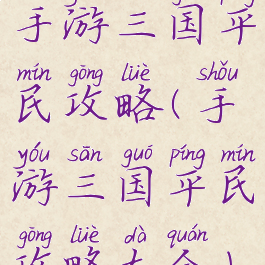 手游三国平
mín gōng lüè shǒu
民攻略(手
yóu sān guó píng mín
游三国平民
gōng lüè dà quán
攻略大全)